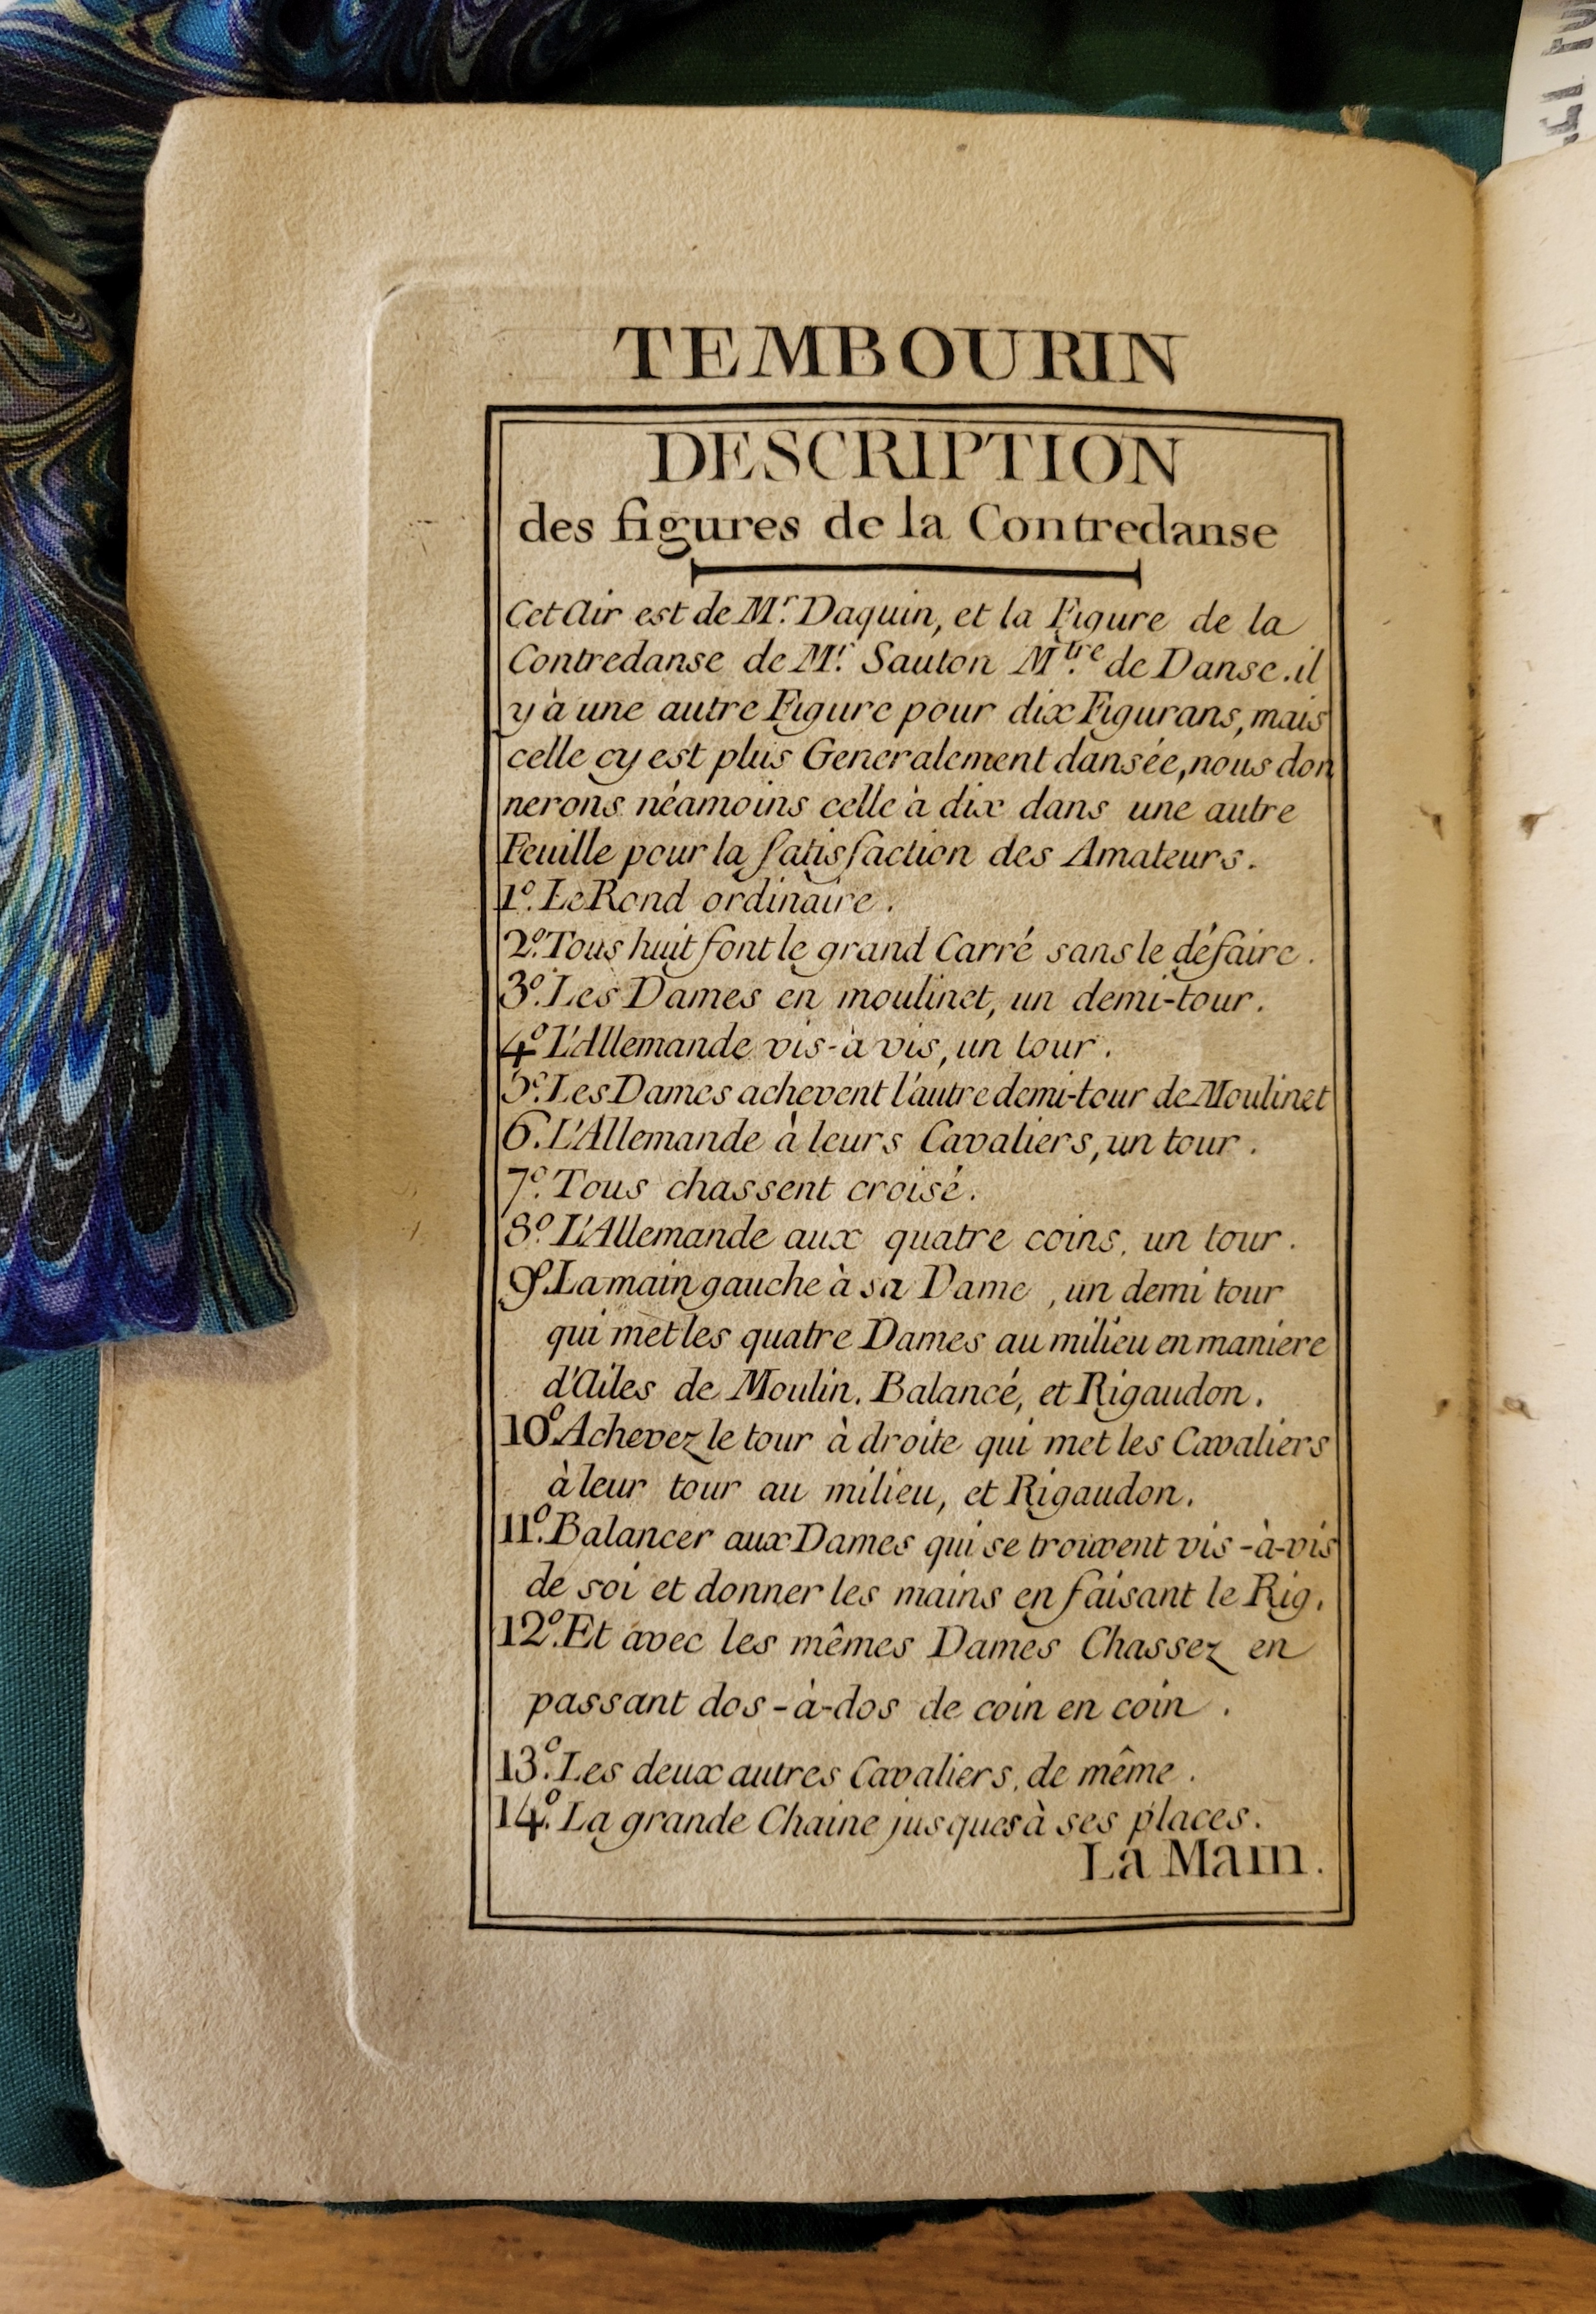 TEMBOURIN
DESCRIPTION
des figures de la Contredanse
Cet Air est de Mr. Daquin, et la Figure de la
Contredanse de Mr. Sauton Mtre. de Danse. il
y à une autre Figure pour dix Figurans, mais
celle cy est plus Generalement dansée, nous don
nerons néamoins celle à dix dans une autre
Feuille pour la satisfaction des Amateurs.
1º. Le Rond ordinaire.
2º. Tous huit font le grand Carré sans le défaire.
3º. Les Dames en moulinet, un demi-tour.
4º L'Allemande vis-à vis, un tour.
5º. Les Dames achevent l'autre demi-tour de Moulinet
6. L'Allemande à leurs Cavaliers, un tour.
7º. Tous chassent croisé.
8º. L'Allemande aux quatre coins, un tour.
9º. La main gauche à sa Dame, un demi tour
qui met les quatre Dames au milieu en maniere
d'Ailes de Moulin. Balancé, et Rigaudon.
10º. Achevez le tour à droite qui met les Cavaliers
à leur tour au milieu, et Rigaudon.
11º. Balancer aux Dames qui se trouvent vis-à-vis
de soi et donner les mains en faisant le Rig.
12º. Et avec les mêmes Dames Chassez en
passant dos-à-dos de coin en coin.
13º. Les deux autres Cavaliers, de même.
14º. La grande Chaine jusques à ses places.
La Main.